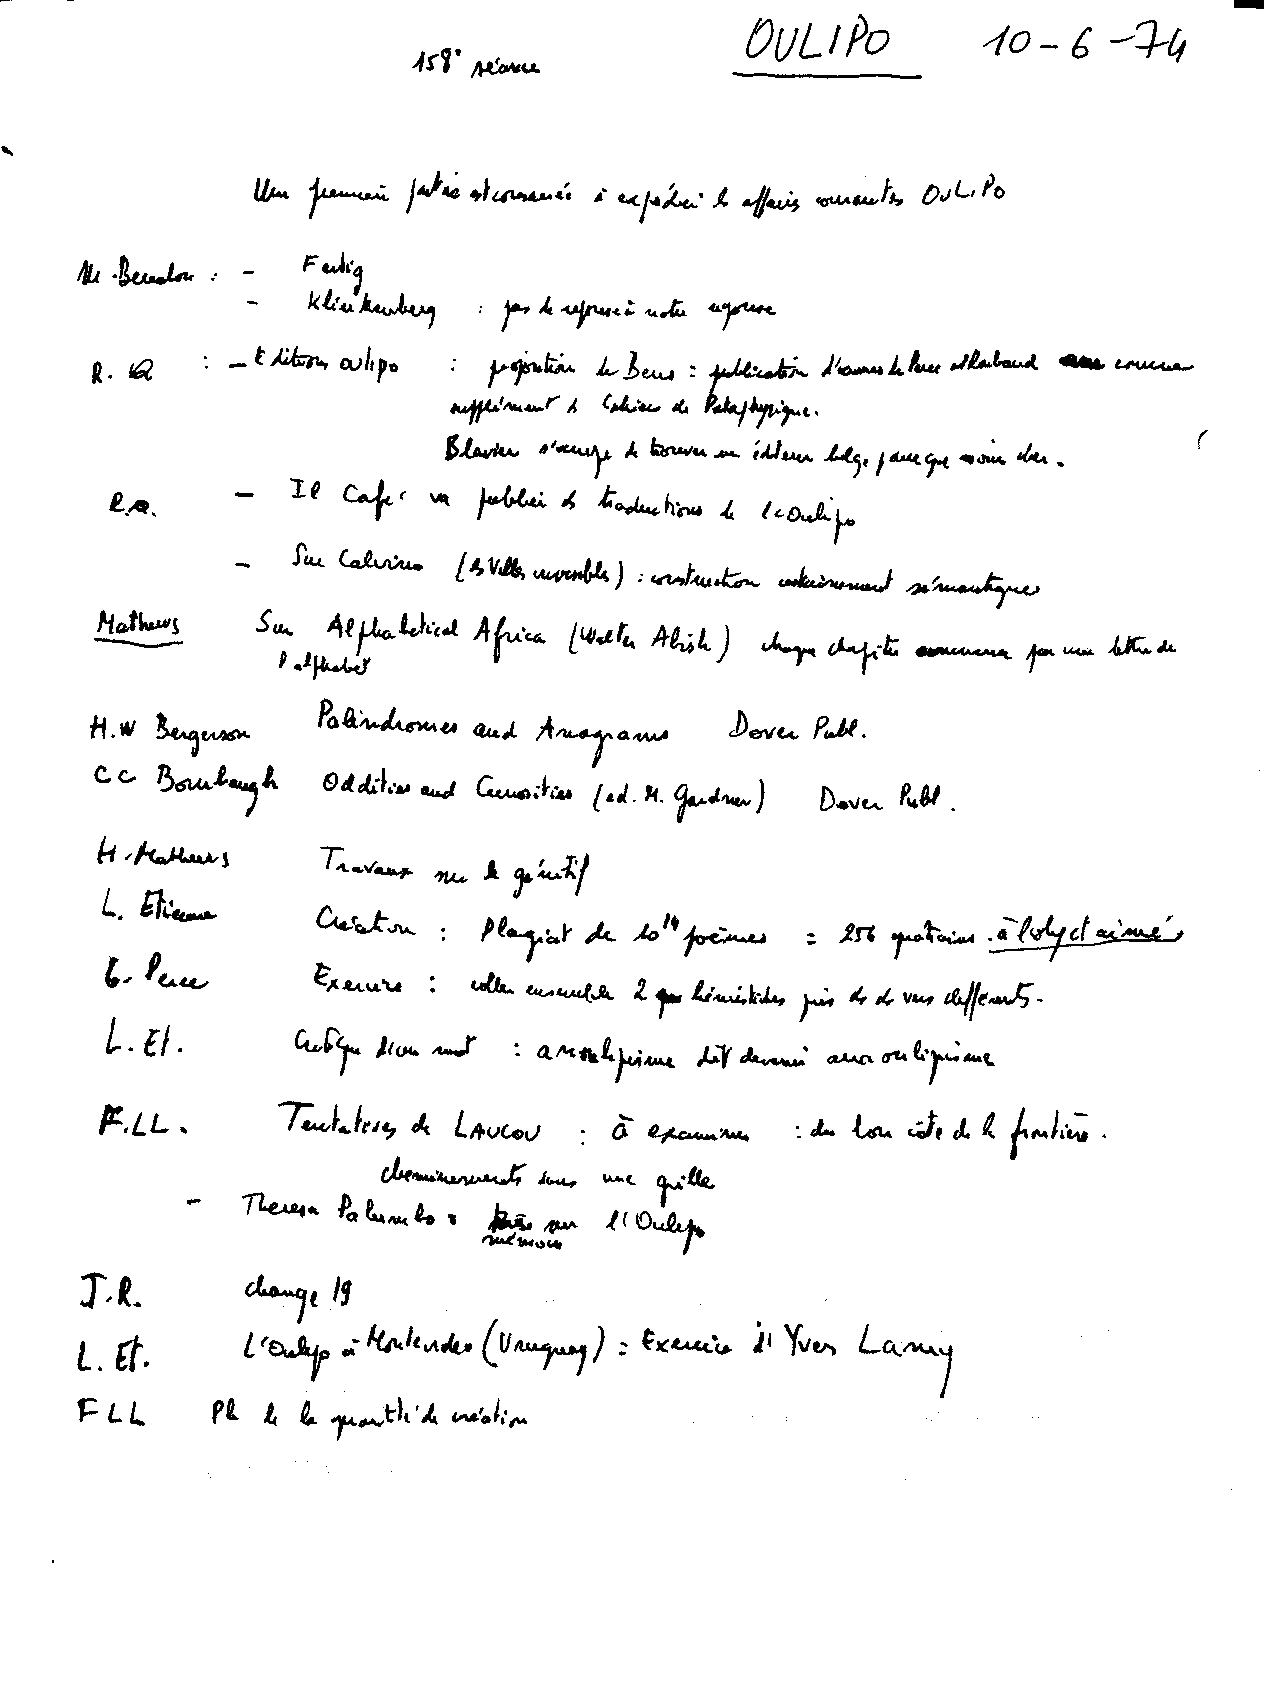 OULIPO 10-6-74
158° séance
Une première partie est consacrée à expédier les affaires courantes OuLiPo
M. Benabou : - Fertig
- Klinkenberg : pas de réponse à notre réponse
R. Q : - Editions oulipo : proposition de Bens : publication d'œuvres de Perec et Roubaud comme
supplément de Cahiers de Pataphysique.
Blavier s'occupe de trouver un éditeur belge parce que moins cher.
R.Q. - Il Caffé va publier des traductions de l'Oulipo
- Sur Calvino (les Villes invisibles) : construction entièrement sémantique
Mathews Sur Alphabetical Africa (Walter Abish) chaque chapitre commence par une lettre de
l'alphabet
H.W Bergerson Palindromes and Anagrams Dover Publ.
C C Bombaugh Oddities and Curiosities (ed. M. Gardner) Dover Publ.
H. Mathews Travaux sur le génitif
L. Etienne Création : Plagiat de 10¹⁴ poèmes = 256 quatrains à l'objet aimé
G. Perec Exercice : coller ensemble 2 hémistiches pris de vers différents.
L. Et. Critique d'un mot : anoulipisme doit devenir anaoulipisme
F.LL. Tentatives de LAUCOU : à examiner : du bon côté de la frontière.
cheminements sous une grille
- Theresa Palumbo : sur l'Oulipo
mémoire
J.R. change 19
L. Et. L'Oulipo à Montevideo (Uruguay) = Exercice d' Yves Lamy
F L L Pb de la quantité de création